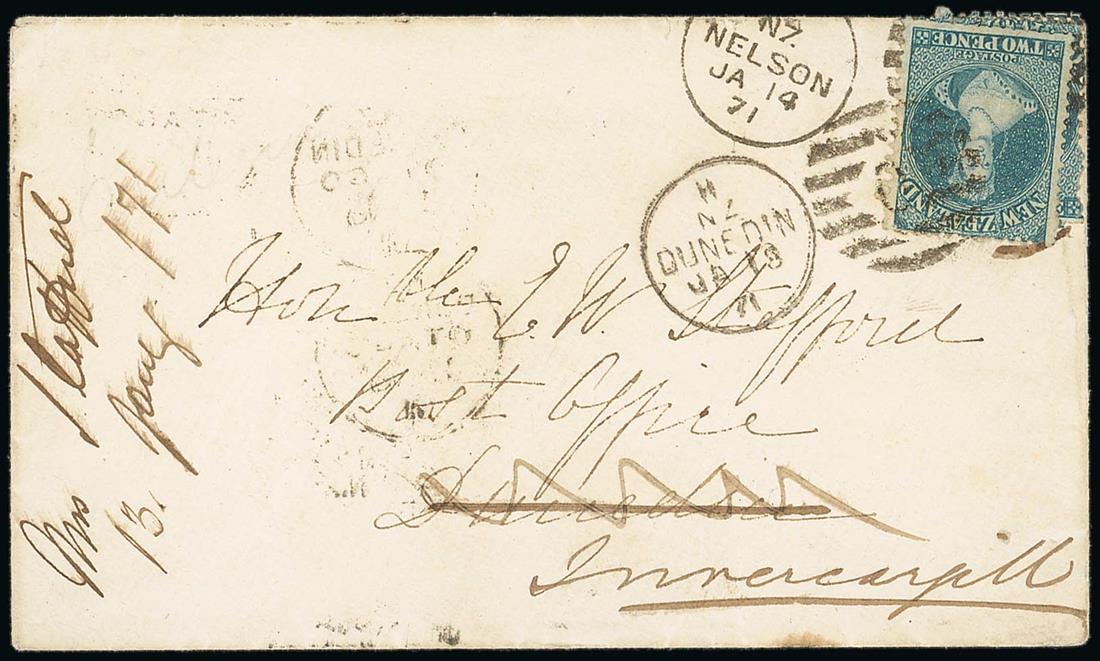 NZ
NELSON
JA 14
71
TWO PENCE
POSTAGE
NEW ZEALAND
H
NZ
DUNEDIN
JA 18
71
Mrs Stafford
13. Jany. 171
Hon ble E. W. Stafford
Post Office
Dunedin
Invercargill